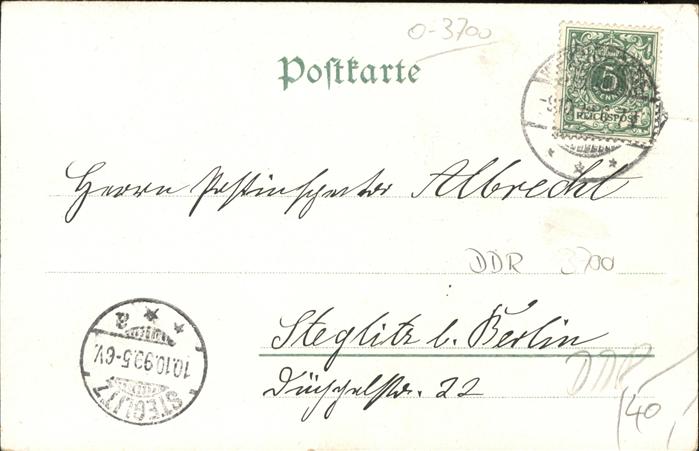 O-3700
Postkarte
5
REICHSPOST
Herrn Postinspektor Albrecht
DDR 3700
Steglitz b. Berlin
Düppelstr. 22
DDR
140
STEGLITZ
10.10.99.5-6V.
a